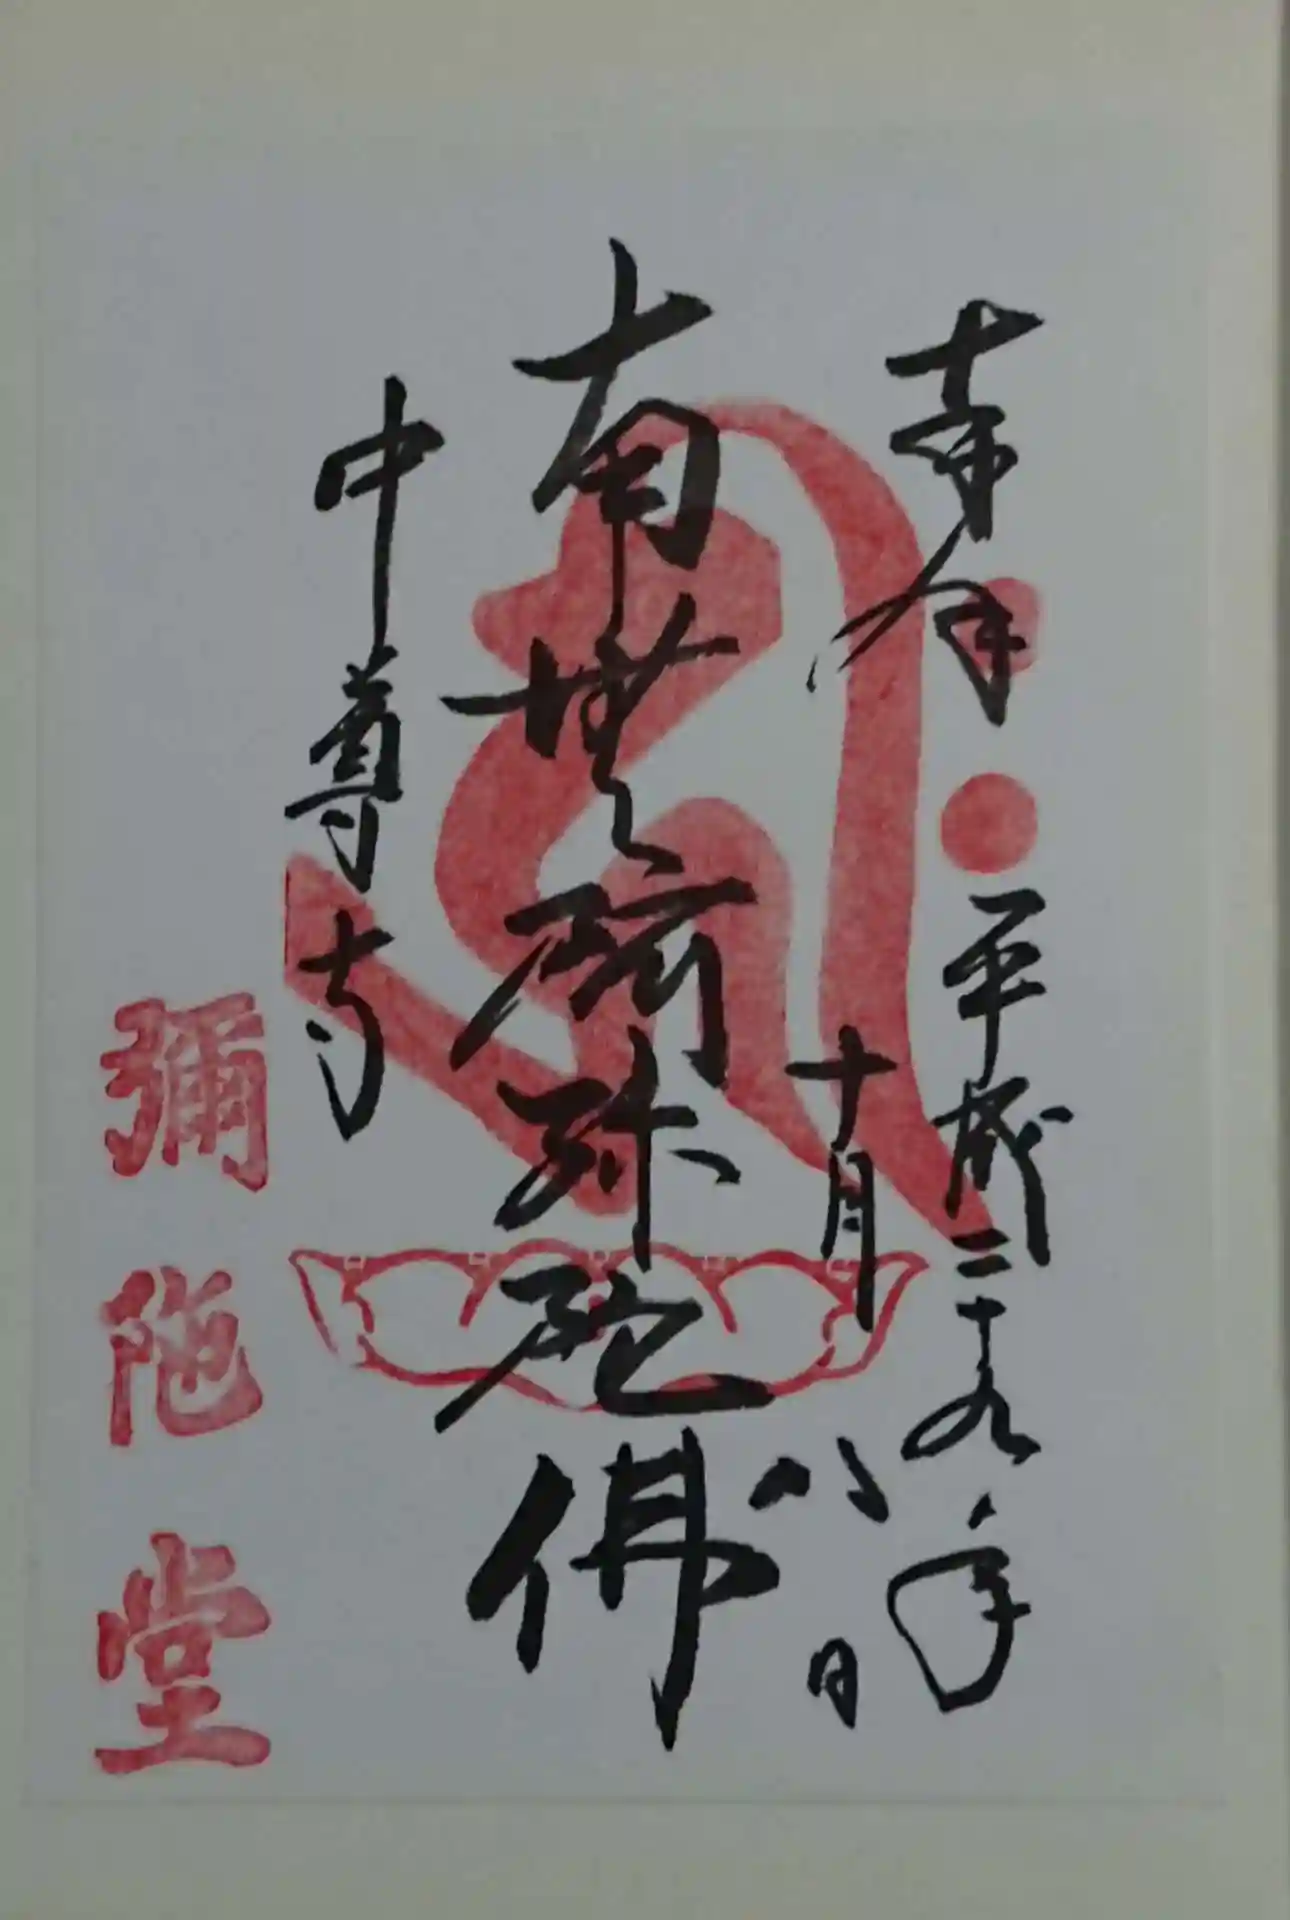 奉拝
平成二十九年
十月
八日
南無阿弥陀佛
中尊寺
彌陀堂